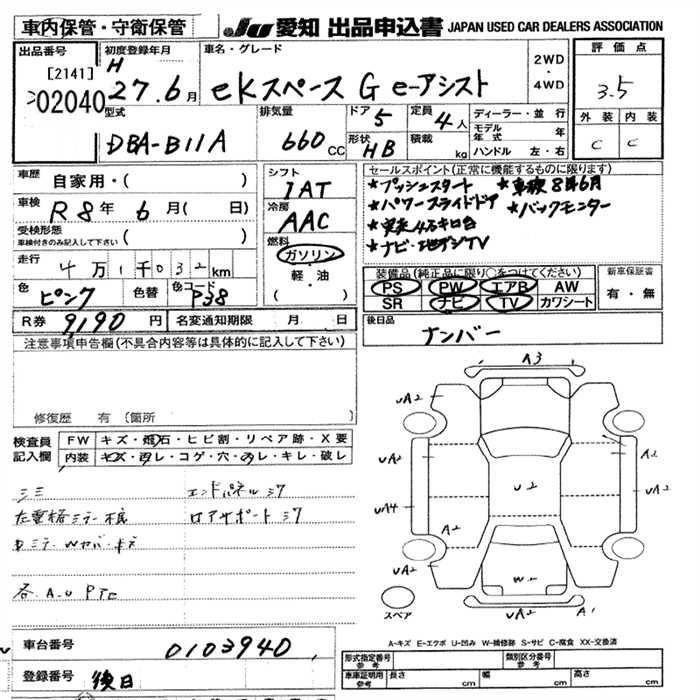 車内保管・守衛保管
JU 愛知 出品申込書 JAPAN USED CAR DEALERS ASSOCIATION
出品番号
[2141]
02040
初度登録年月
H 27.6月
車名・グレード
eKスペース G e-アシスト
2WD・4WD
評価点
3.5
外装 内装
C C
型式
DBA-B11A
排気量
660 CC
ドア 5
形状 HB
定員 4人
積載 kg
ディーラー・並行
モデル年式 年
ハンドル 左・右
車歴 自家用・( )
車検 R8年 6月( 日)
受検形態
車検付きのみ記入して下さい ( )
走行 4万1千032km
色 ピンク 色替 色コード P38
R券 9190円 名変通知期限 月 日
シフト
IAT
冷房
AAC
燃料
ガソリン
・
軽油
( )
セールスポイント(正常に機能するものに限ります)
★プッシュスタート ★車検8年6月
★パワースライドドア ★バックモニター
★実走4万キロ台
★ナビ・地デジTV
装備品(純正品に限り○をつけてください)
PS PW エアB AW
SR ナビ TV カワシート
新車保証書
有・無
後日品
ナンバー
注意事項申告欄(不具合内容等は具体的に記入して下さい)
修復歴 有(箇所 )
検査員記入欄
FW キズ・飛石・ヒビ割・リペア跡・X要
内装 キズ・汚レ・コゲ・穴・汚レ・キレ・破レ
エンドパネルシワ
ロアサポートシワ
各A.U
A3
UA2
UA2
UA4
A2
U2
A2
UA2
A2
W2
UA2
A1
スペア
A-キズ E-エクボ U-凹み W-補修跡 S-サビ C-腐食 XX-交換済
車台番号 0103940
登録番号 後日
形式指定番号 類別区分番号
車庫証明用参考 長さ cm 幅 cm 高さ cm